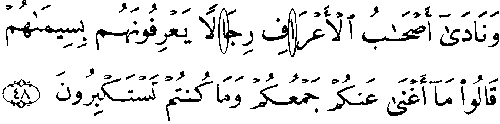 وَنَادَىٰٓ أَصْحَٰبُ ٱلْأَعْرَافِ رِجَالًا يَعْرِفُونَهُم بِسِيمَىٰهُمْ
قَالُوا۟ مَآ أَغْنَىٰ عَنكُمْ جَمْعُكُمْ وَمَا كُنتُمْ تَسْتَكْبِرُونَ ٤٨